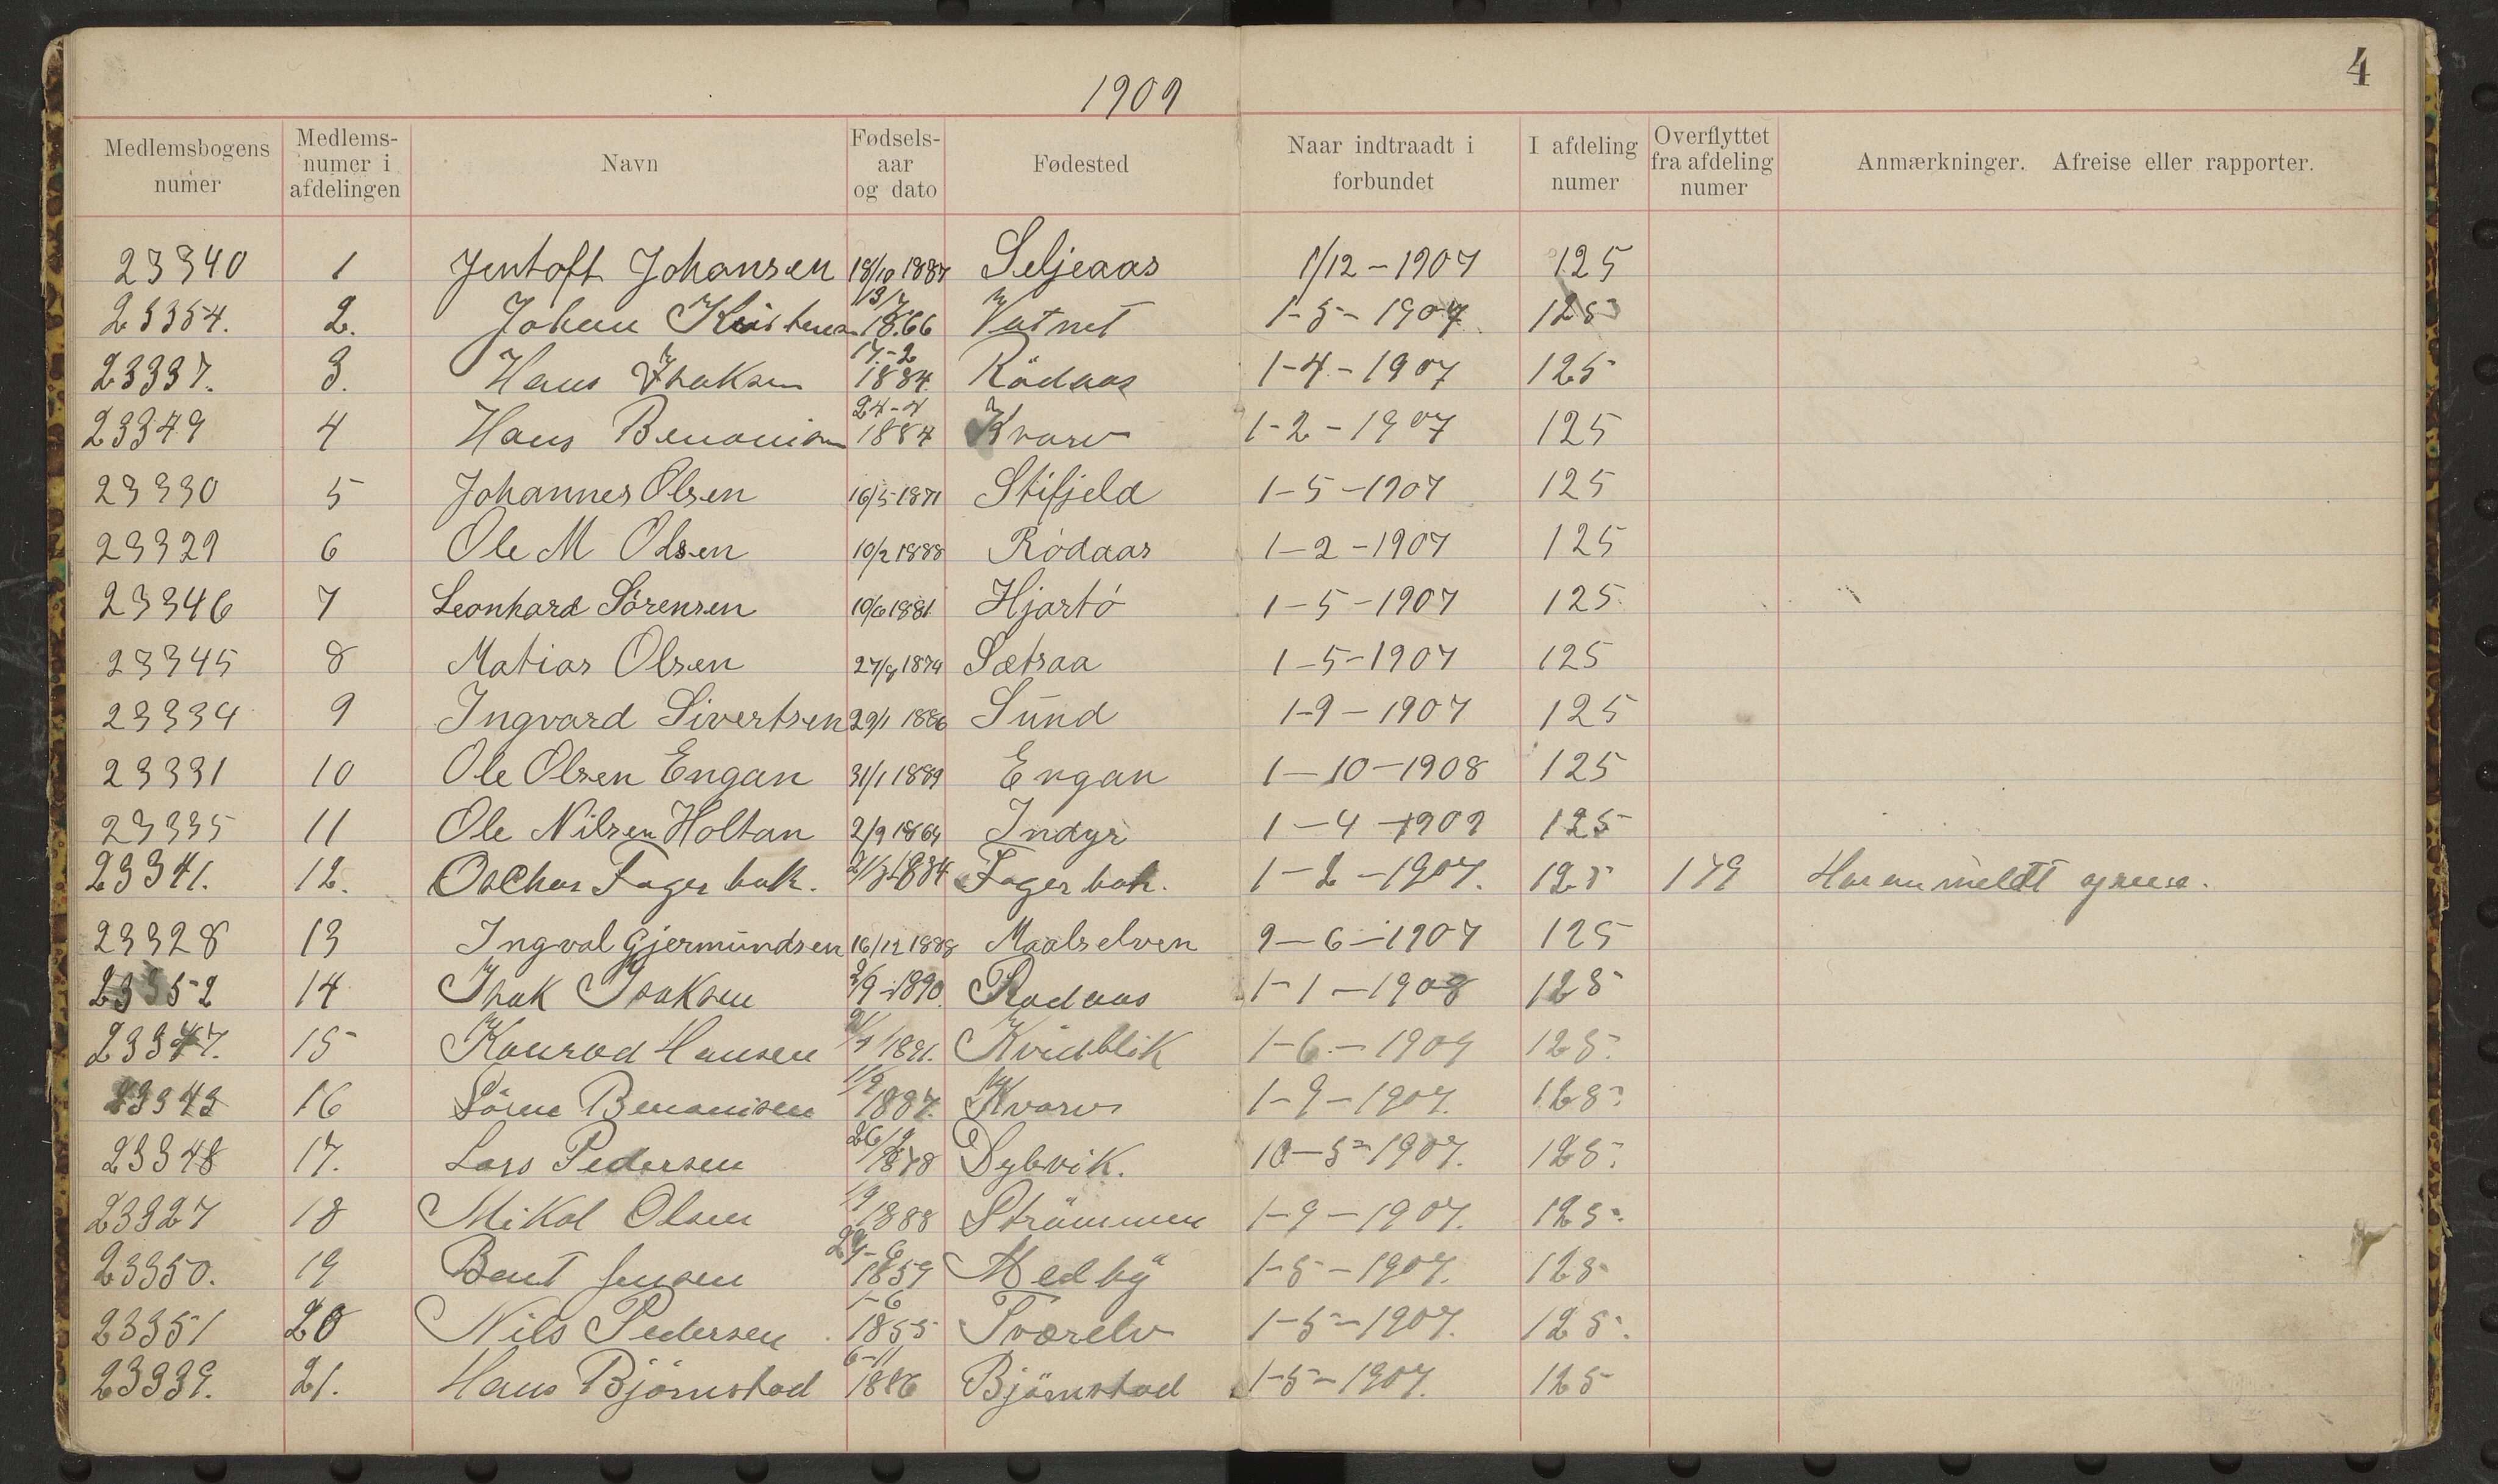 4
1909
Medlemsbogens numer | Medlems-numer i afdelingen | Navn | Fødsels-aar og dato | Fødested | Naar indtraadt i forbundet | I afdeling numer | Overflyttet fra afdeling numer | Anmærkninger. Afreise eller rapporter.
23340 1 Jentoft Johansen 18/10 1887 Seljeaas 1/12 - 1907 125
23354. 2. Johan 13/7 1866 Vatnet 1-5-1907 125
23337. 3. Hans Isaksen 17.-2 1884. Rödaas 1-4-1907 125
23349 4 Hans Benonisen 24-4 1884 Kvarv 1-2-1907 125
23330 5 Johannes Olsen 16/5 1871 Stifjeld 1-5-1907 125
23329 6 Ole M Olsen 10/2 1888 Rödaas 1-2-1907 125
23346 7 Leonhard Sörensen 10/6 1881 Hjartö 1-5-1907 125
23345 8 Matias Olsen 1874 Sætraa 1-5-1907 125
23334 9 Ingvard Sivertsen 29/1 1886 Sund 1-9-1907 125
23331 10 Ole Olsen Engan 31/1 1889 Engan 1-10-1908 125
23335 11 Ole Nilsen Holtan 2/9 1864 Indyr 1-4-1909 125
23341. 12. Oschar Fagerbak. 1884 Fagerbak. 1-2-1907. 125 179
23328 13 Ingval Gjermundsen 16/12 1888 Maalselven 9-6-1907 125
23352 14 Isak Isaksen 2/9-1890. Rödaas 1-1-1908 125
23347. 15 Konrad Hansen 1891. Kvidblik 1-6.-1909 125.
23343 16 Sören Benonisen 1/9 1887. Kvarv 1-9-1907. 125.
23348 17. Lars Pedersen 1878 Dybvik. 10-5-1907. 125.
23327 18 Mikal Olsen 1/9 1888 Strömmen 1-9-1907. 125.
23350. 19 Bent Jensen 1859 Medby 1-5-1907. 125
23351 20 Nils Pedersen 1-6 1855 Tværelv 1-5-1907. 125.
23339. 21. Hans Björnstad 6-11 1886 Björnstad 1-5-1907. 125